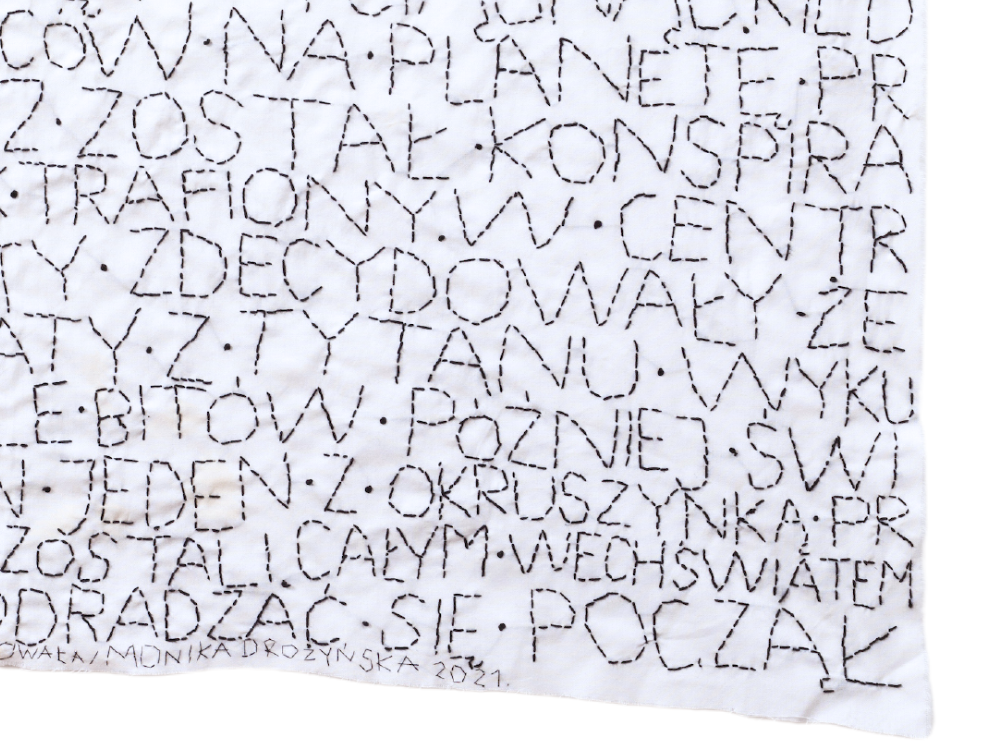 CÓW · NA · PLANETĘ · PR
Z · ZOSTAŁ · KONSPIRA
· TRAFIONY · W · CENTR
TY · ZDECYDOWAŁY · ŻE
ATY · Z · TYTANU · WYKU
E · BITÓW · PÓŹNIEJ · ŚWI
N · JEDEN · Z · OKRUSZYNKĄ · PR
ZOSTALI · CAŁYM · WECHŚWIATEM
ODRADZAĆ · SIĘ · POCZĄŁ
OWAŁA / MONIKA DROŻYŃSKA 2021.